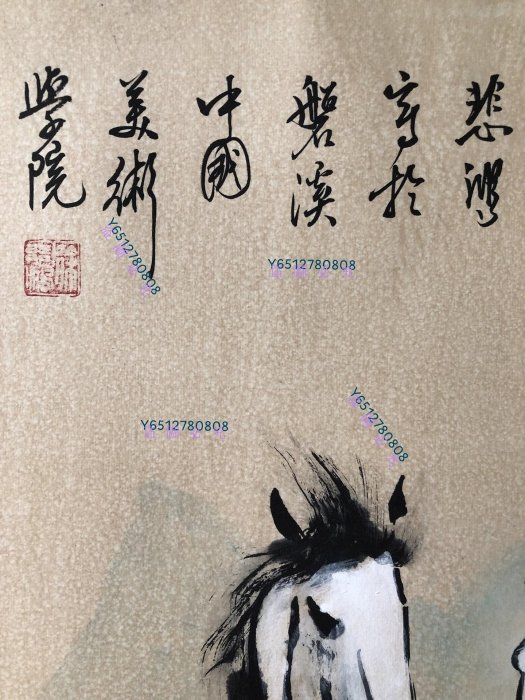 悲鴻
寫於
磐溪
中國
美術
學院
Y6512780808
Y6512780808
Y6512780808
Y6512780808